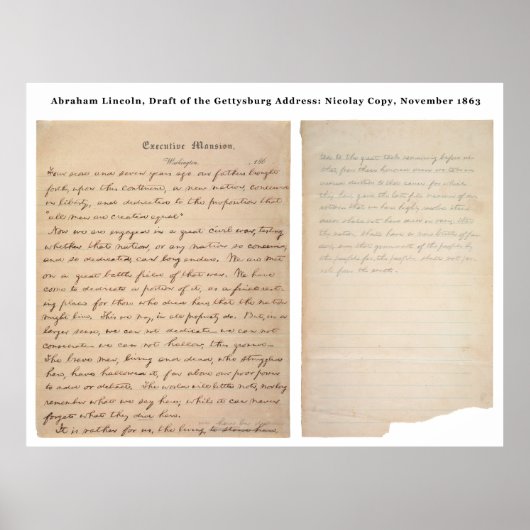 Abraham Lincoln, Draft of the Gettysburg Address: Nicolay Copy, November 1863
Executive Mansion,
Washington, , 186
Four score and seven years ago our fathers brought
forth, upon this continent, a new nation, conceived
in liberty, and dedicated to the proposition that
"all men are created equal"
Now we are engaged in a great civil war, testing
whether that nation, or any nation so conceived,
and so dedicated, can long endure. We are met
on a great battle field of that war. We have
come to dedicate a portion of it, as a final rest-
ing place for those who died here, that the nation
might live. This we may, in all propriety do. But, in a
larger sense, we can not dedicate — we can not
consecrate — we can not hallow, this ground —
The brave men, living and dead, who struggled
here, have hallowed it, far above our poor power
to add or detract. The world will little note, nor long
remember what we say here; while it can never
forget what they did here.
we here be dedica-
It is rather for us, the living, to stand here
ted to the great task remaining before us —
that, from these honored dead we take in-
creased devotion to that cause for which
they here, gave the last full measure of de-
votion — that we here highly resolve these
dead shall not have died in vain; that
the nation, shall have a new birth of free-
dom, and that government of the people by
the people for the people, shall not per-
ish from the earth.